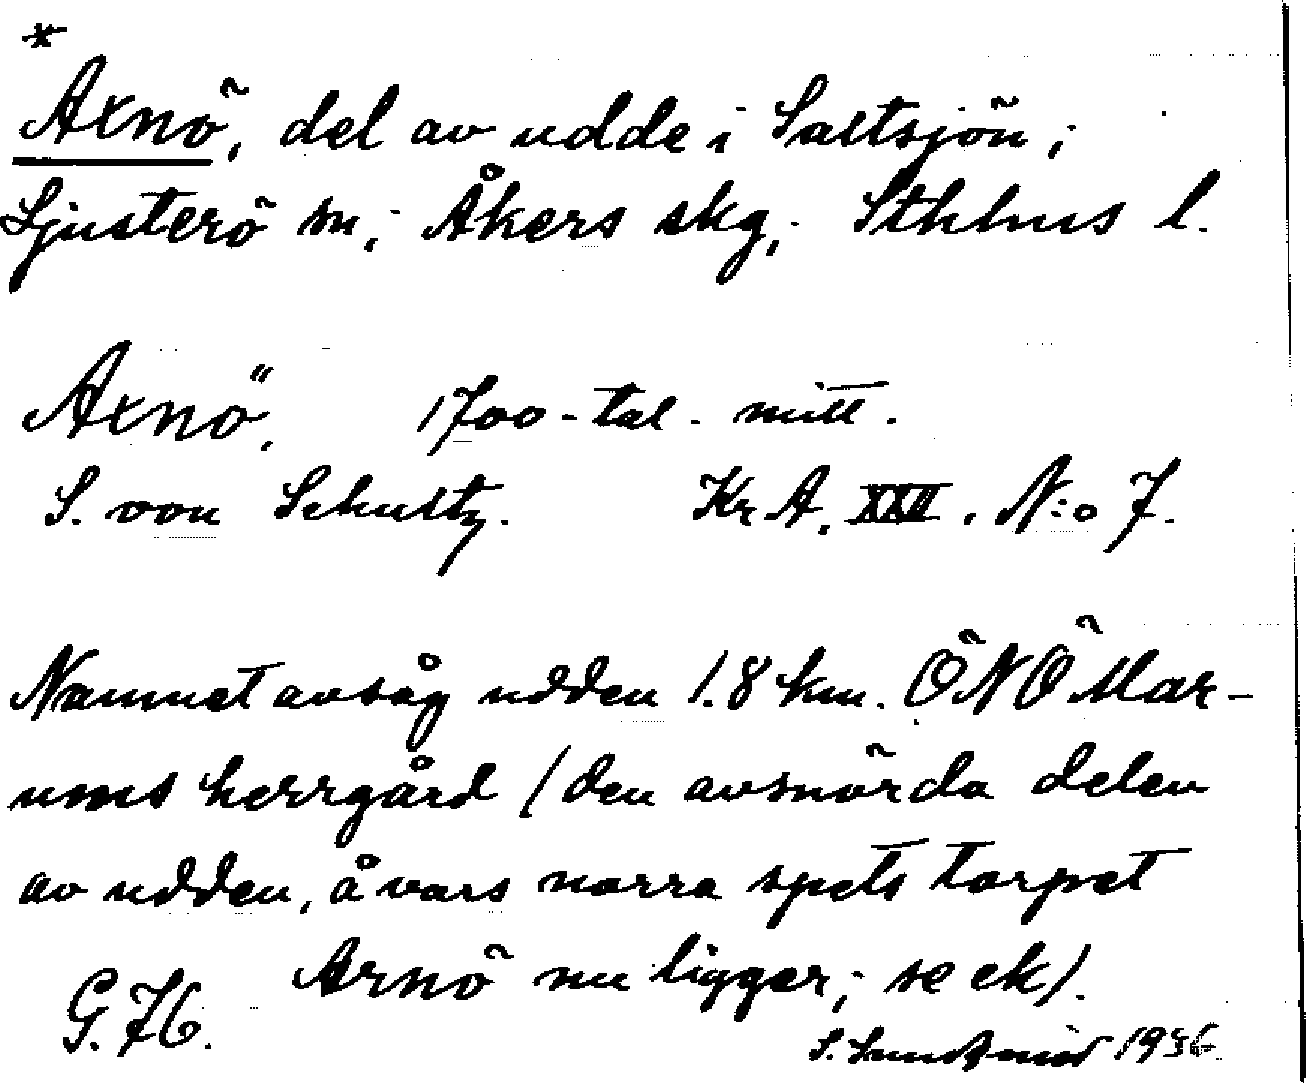 *
Axnö, del av udde i Saltsjön;
Ljusterö sn; Åkers skg; Sthlms l.
Axnö. 1700-tal. mitt.
S. von Schultz. Kr A. XXII. N:o 7.
Namnet avsåg udden 1.8 km. ÖNÖ Mar-
ums herrgård (den avsnörda delen
av udden, å vars norra spets torpet
Arnö nu ligger; se ek).
G. 76.
S. 1936